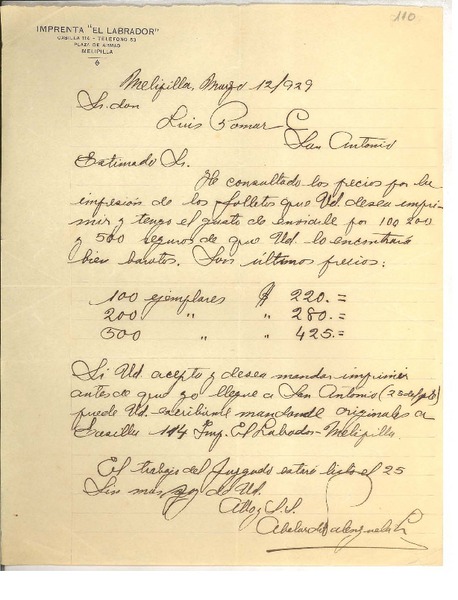 110.
IMPRENTA "EL LABRADOR"
CASILLA 114 - TELEFONO 53
PLAZA DE ARMAS
MELIPILLA
Melipilla, Marzo 12/929
Sr. don
Luis Pomar C
San Antonio
Estimado Sr.
He consultado los precios por la
impresión de los folletos que Vd desea impri-
mir y tengo el gusto de enviarle por 100 200
y 500 seguros de que Vd. lo encontrará
bien baratos. Son últimos precios:
100 ejemplares $ 220.=
200 " " 280.=
500 " " 425.=
Si Vd. acepta y desea mandar imprimir
antes de que yo llegue a San Antonio
puede Vd. escribirme mandando originales a
Casilla 114 Imp. El Labrador - Melipilla.
El trabajo del Juzgado estará listo el 25
Sin mas soy de Ud.
Atto y S.S.
Abelardo Valenzuela L